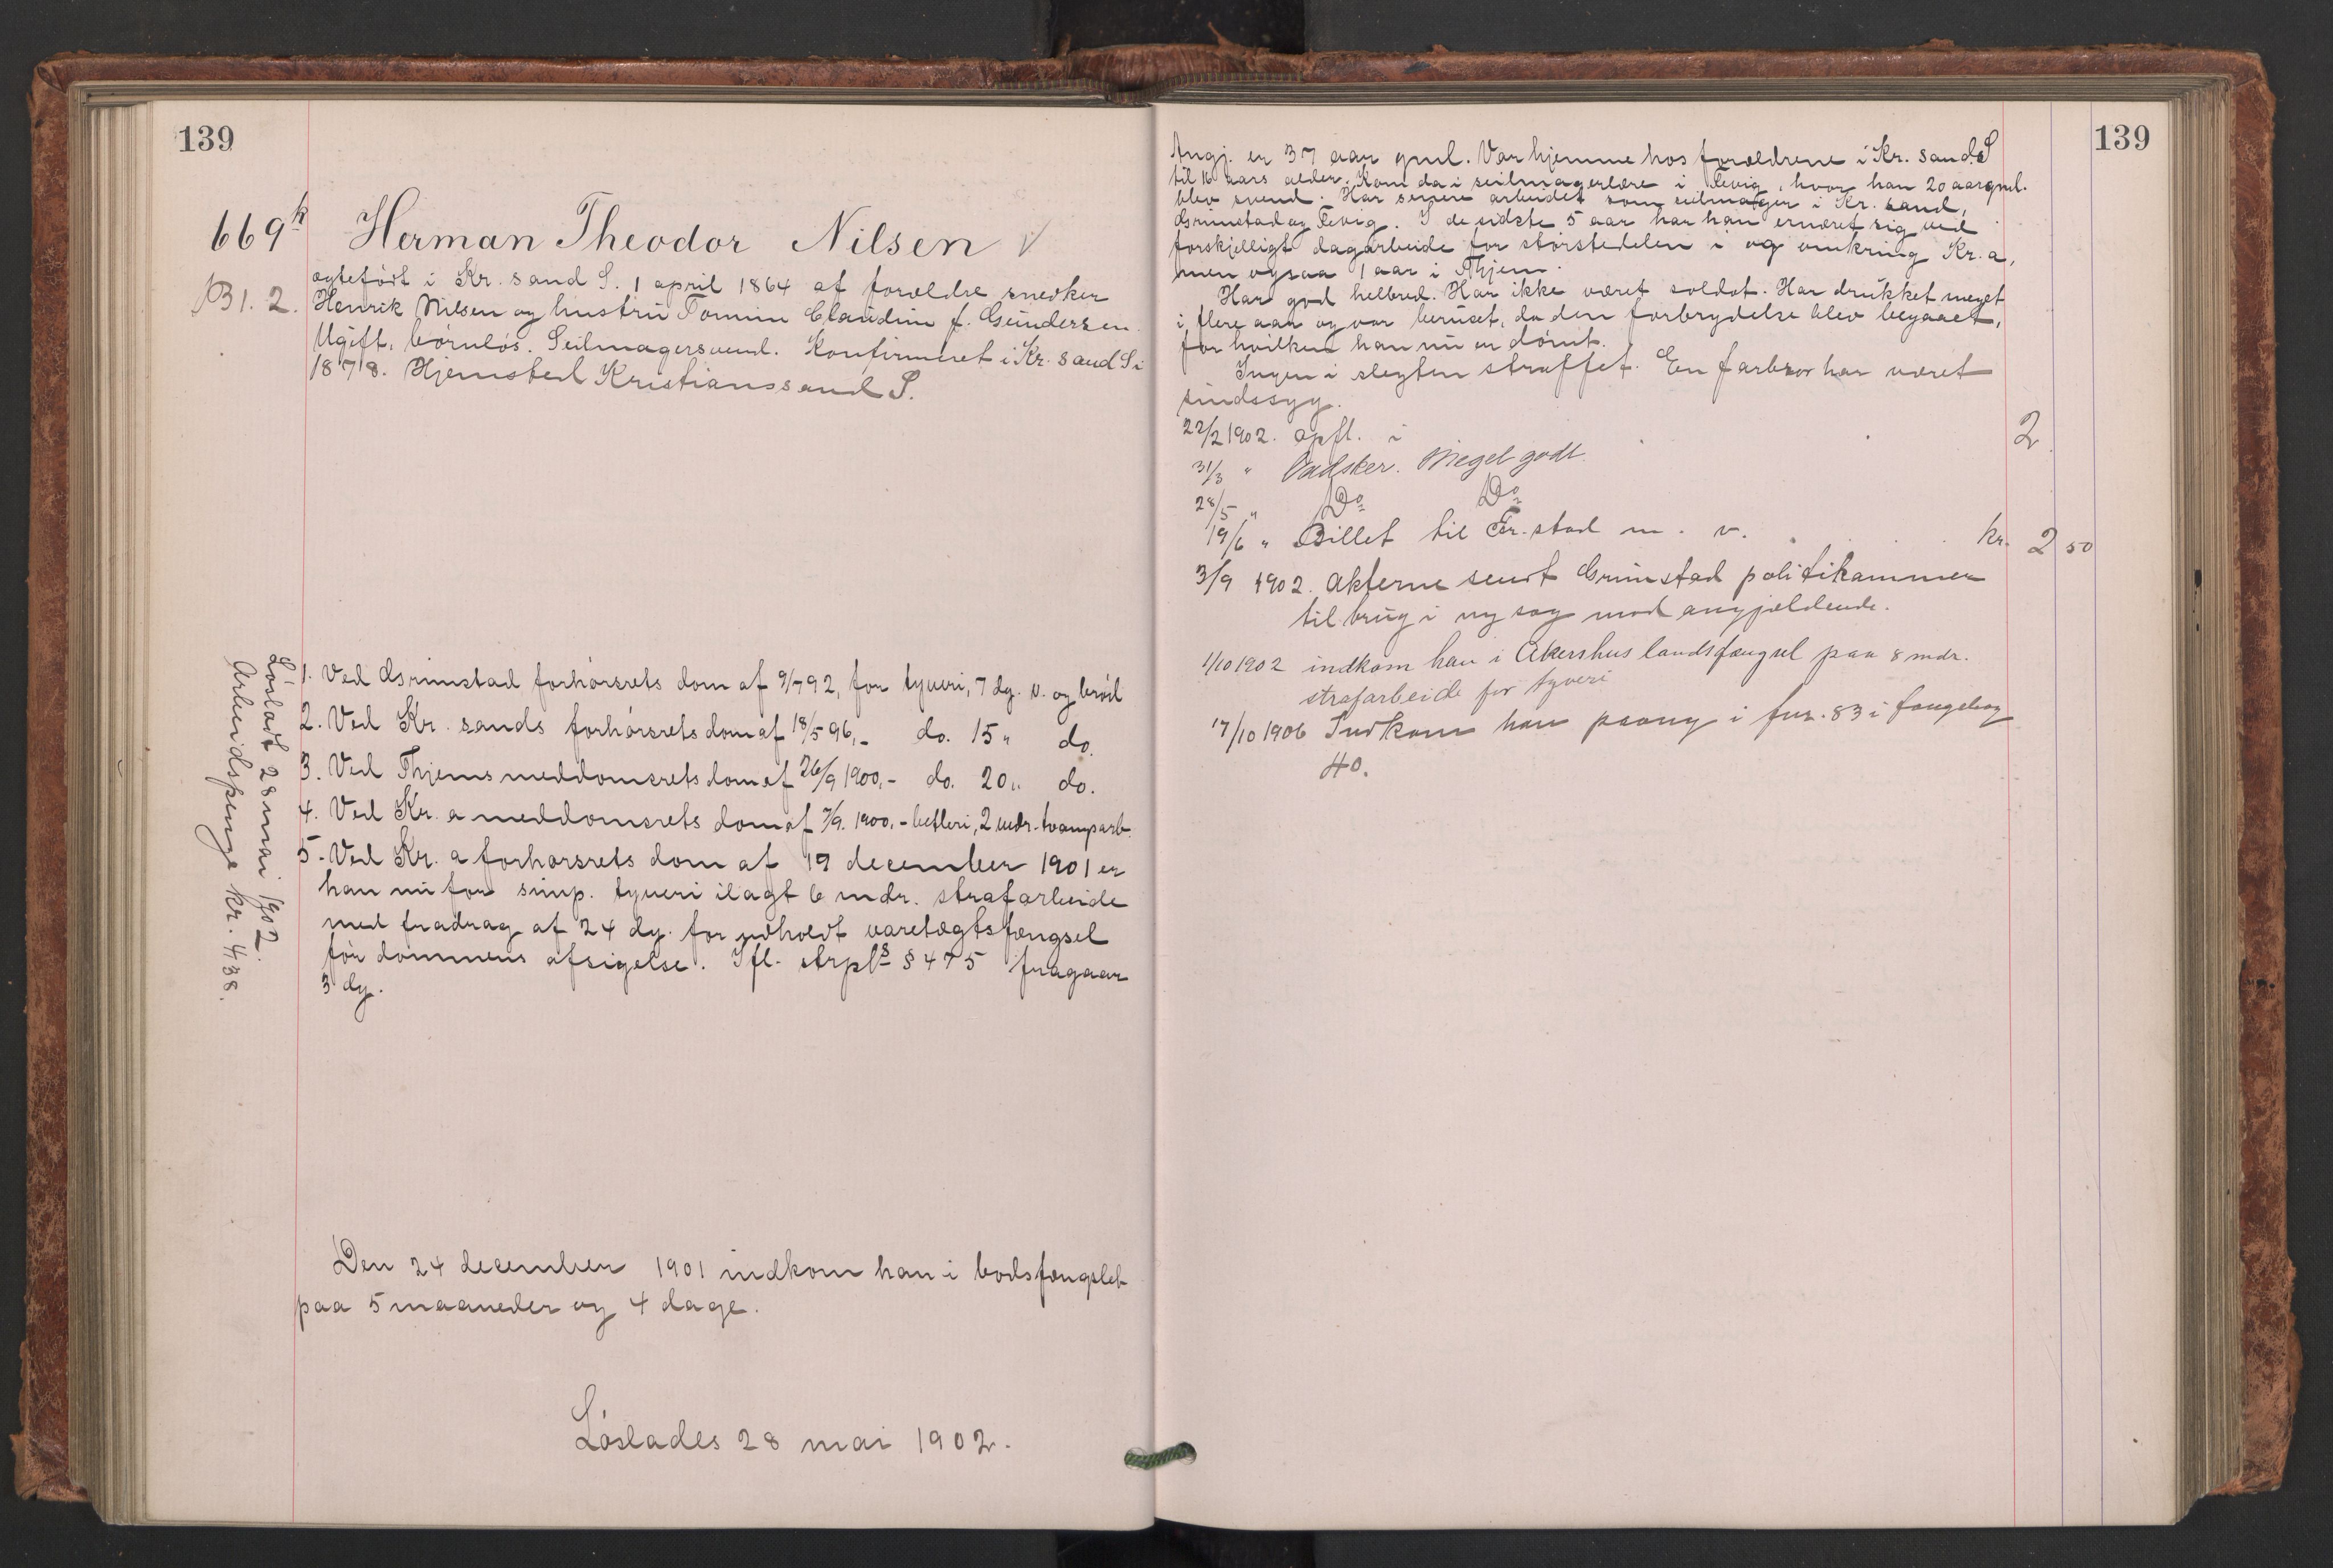 139
669k Herman Theodor Nilsen √
B1. 2.
ægtefødt i Kr. sand S. 1 april 1864 af forældre snedker
Henrik Nilsen og hustru Tomine Claudine f. Gundersen.
Ugift, børnløs. Seilmagersvend. Konfirmeret i Kr. sand S i
1878. Hjemsted Kristianssand S.
1. Ved Grimstad forhørsrets dom af 9/7 92, for tyveri, 7 dg. v. og brød
2. Ved Kr. sands forhørsrets dom af 18/5 96,- do. 15 " do.
3. Ved Thjems meddomsrets dom af 26/9 1900,- do. 20 " do.
4. Ved Kr. a meddomsrets dom af 7/9. 1900,- betleri, 2 mdr. tvangsarb.
5. Ved Kr. a forhørsrets dom af 19 december 1901 er
han nu for simp. tyveri ilagt 6 mdr. strafarbeide
med fradrag af 24 dg. for udholdt varetægtsfængsel
før dommens afsigelse. Ifl. strpls § 475 fragaar
3 dg.
Løsladt 28 mai 1902.
Arbeidspenge kr. 4.38.
Den 24 december 1901 indkom han i bodsfængslet
paa 5 maaneder og 4 dage.
Løslades 28 mai 1902.
139
Angj. er 37 aar gml. Var hjemme hos forældrene i Kr. sand S
til 16 aars alder. Kom da i seilmagerlære i Fevig, hvor han 20 aar gml.
blev svend. Har senere arbeidet som seilmager i Kr. sand,
Grimstad og Fevig. I de sidste 5 aar har han ernæret sig ved
forskjelligt dagarbeide for størstedelen i og omkring Kr. a,
men ogsaa 1 aar i Thjem.
Har god helbred. Har ikke været soldat. Har drukket meget
i flere aar og var beruset, da den forbrydelse blev begaaet,
for hvilken han nu er dømt.
Ingen i slegten straffet. En farbror har været
sindssyg.
22/2 1902. opfl. i 2
31/3 " Vadsker. Meget godt.
28/5 " Do Do
19/6 " Billet til Fr. stad m. v. . . . kr. 2 50
3/9 1902. Akterne sendt Grimstad politikammer
til brug i ny sag mod angjældende.
1/10 1902 indkom han i Akershus landsfængsel paa 8 mdr.
strafarbeide for tyveri
17/10 1906 Indkom han paany i fnr. 83 i fangebog
40.